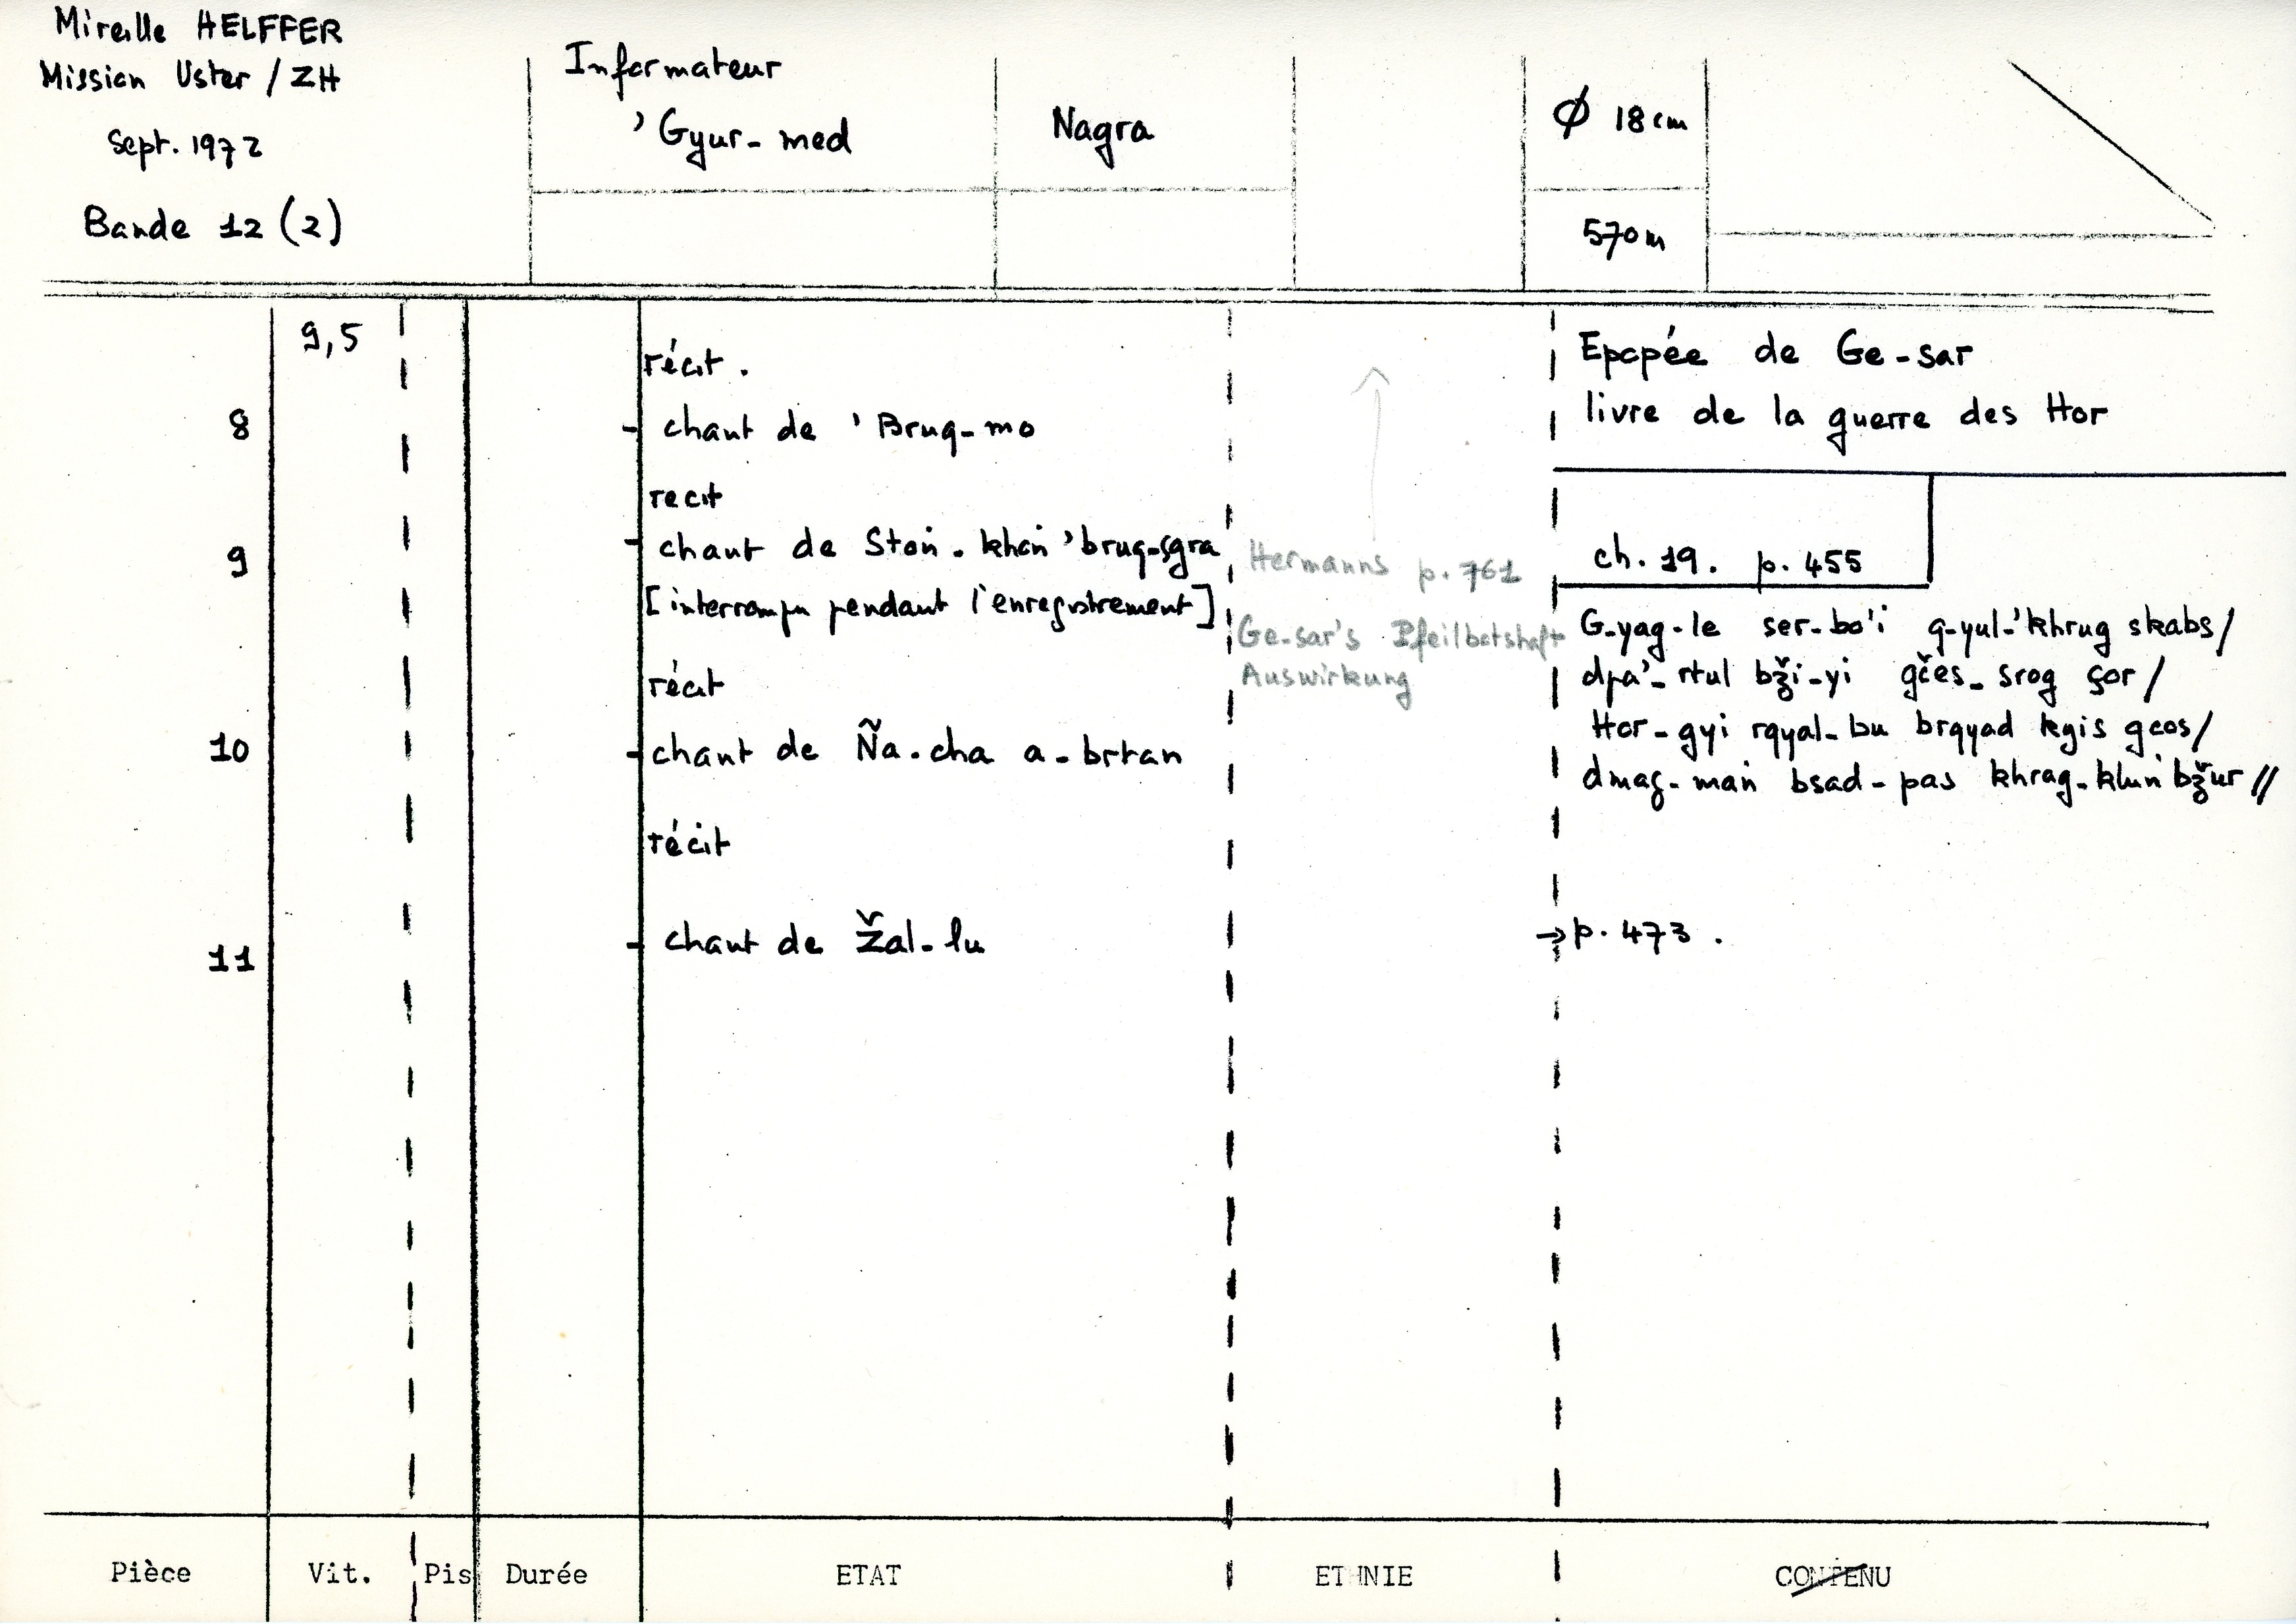 Mireille HELFFER
Mission Uster / ZH
Sept. 1972
Bande 12 (2)
Informateur
'Gyur-med
Nagra
Ø 18 cm
570m
9,5
récit.
8 - chant de 'Brug-mo
recit
9 - chant de Stoṅ-khoṅ 'brug-sgra
[interrompu pendant l'enregistrement]
récit
10 - chant de Ña-cha a-brtan
récit
11 - chant de Žal-lu
Hermanns p. 761
Ge-sar's Pfeilbotshaft
Auswirkung
Epopée de Ge-sar
livre de la guerre des Hor
ch. 19. p. 455
G-yag-le ser-bo'i g-yul-'khrug skabs/
dpa'-rtul bži-yi gčes-srog šor/
Hor-gyi rgyal-bu brgyad kyis gcos/
dmag-maṅ bsad-pas khrag-kluṅ bžur//
→ p. 473.
Pièce Vit. Pis Durée ETAT ETHNIE CONTENU